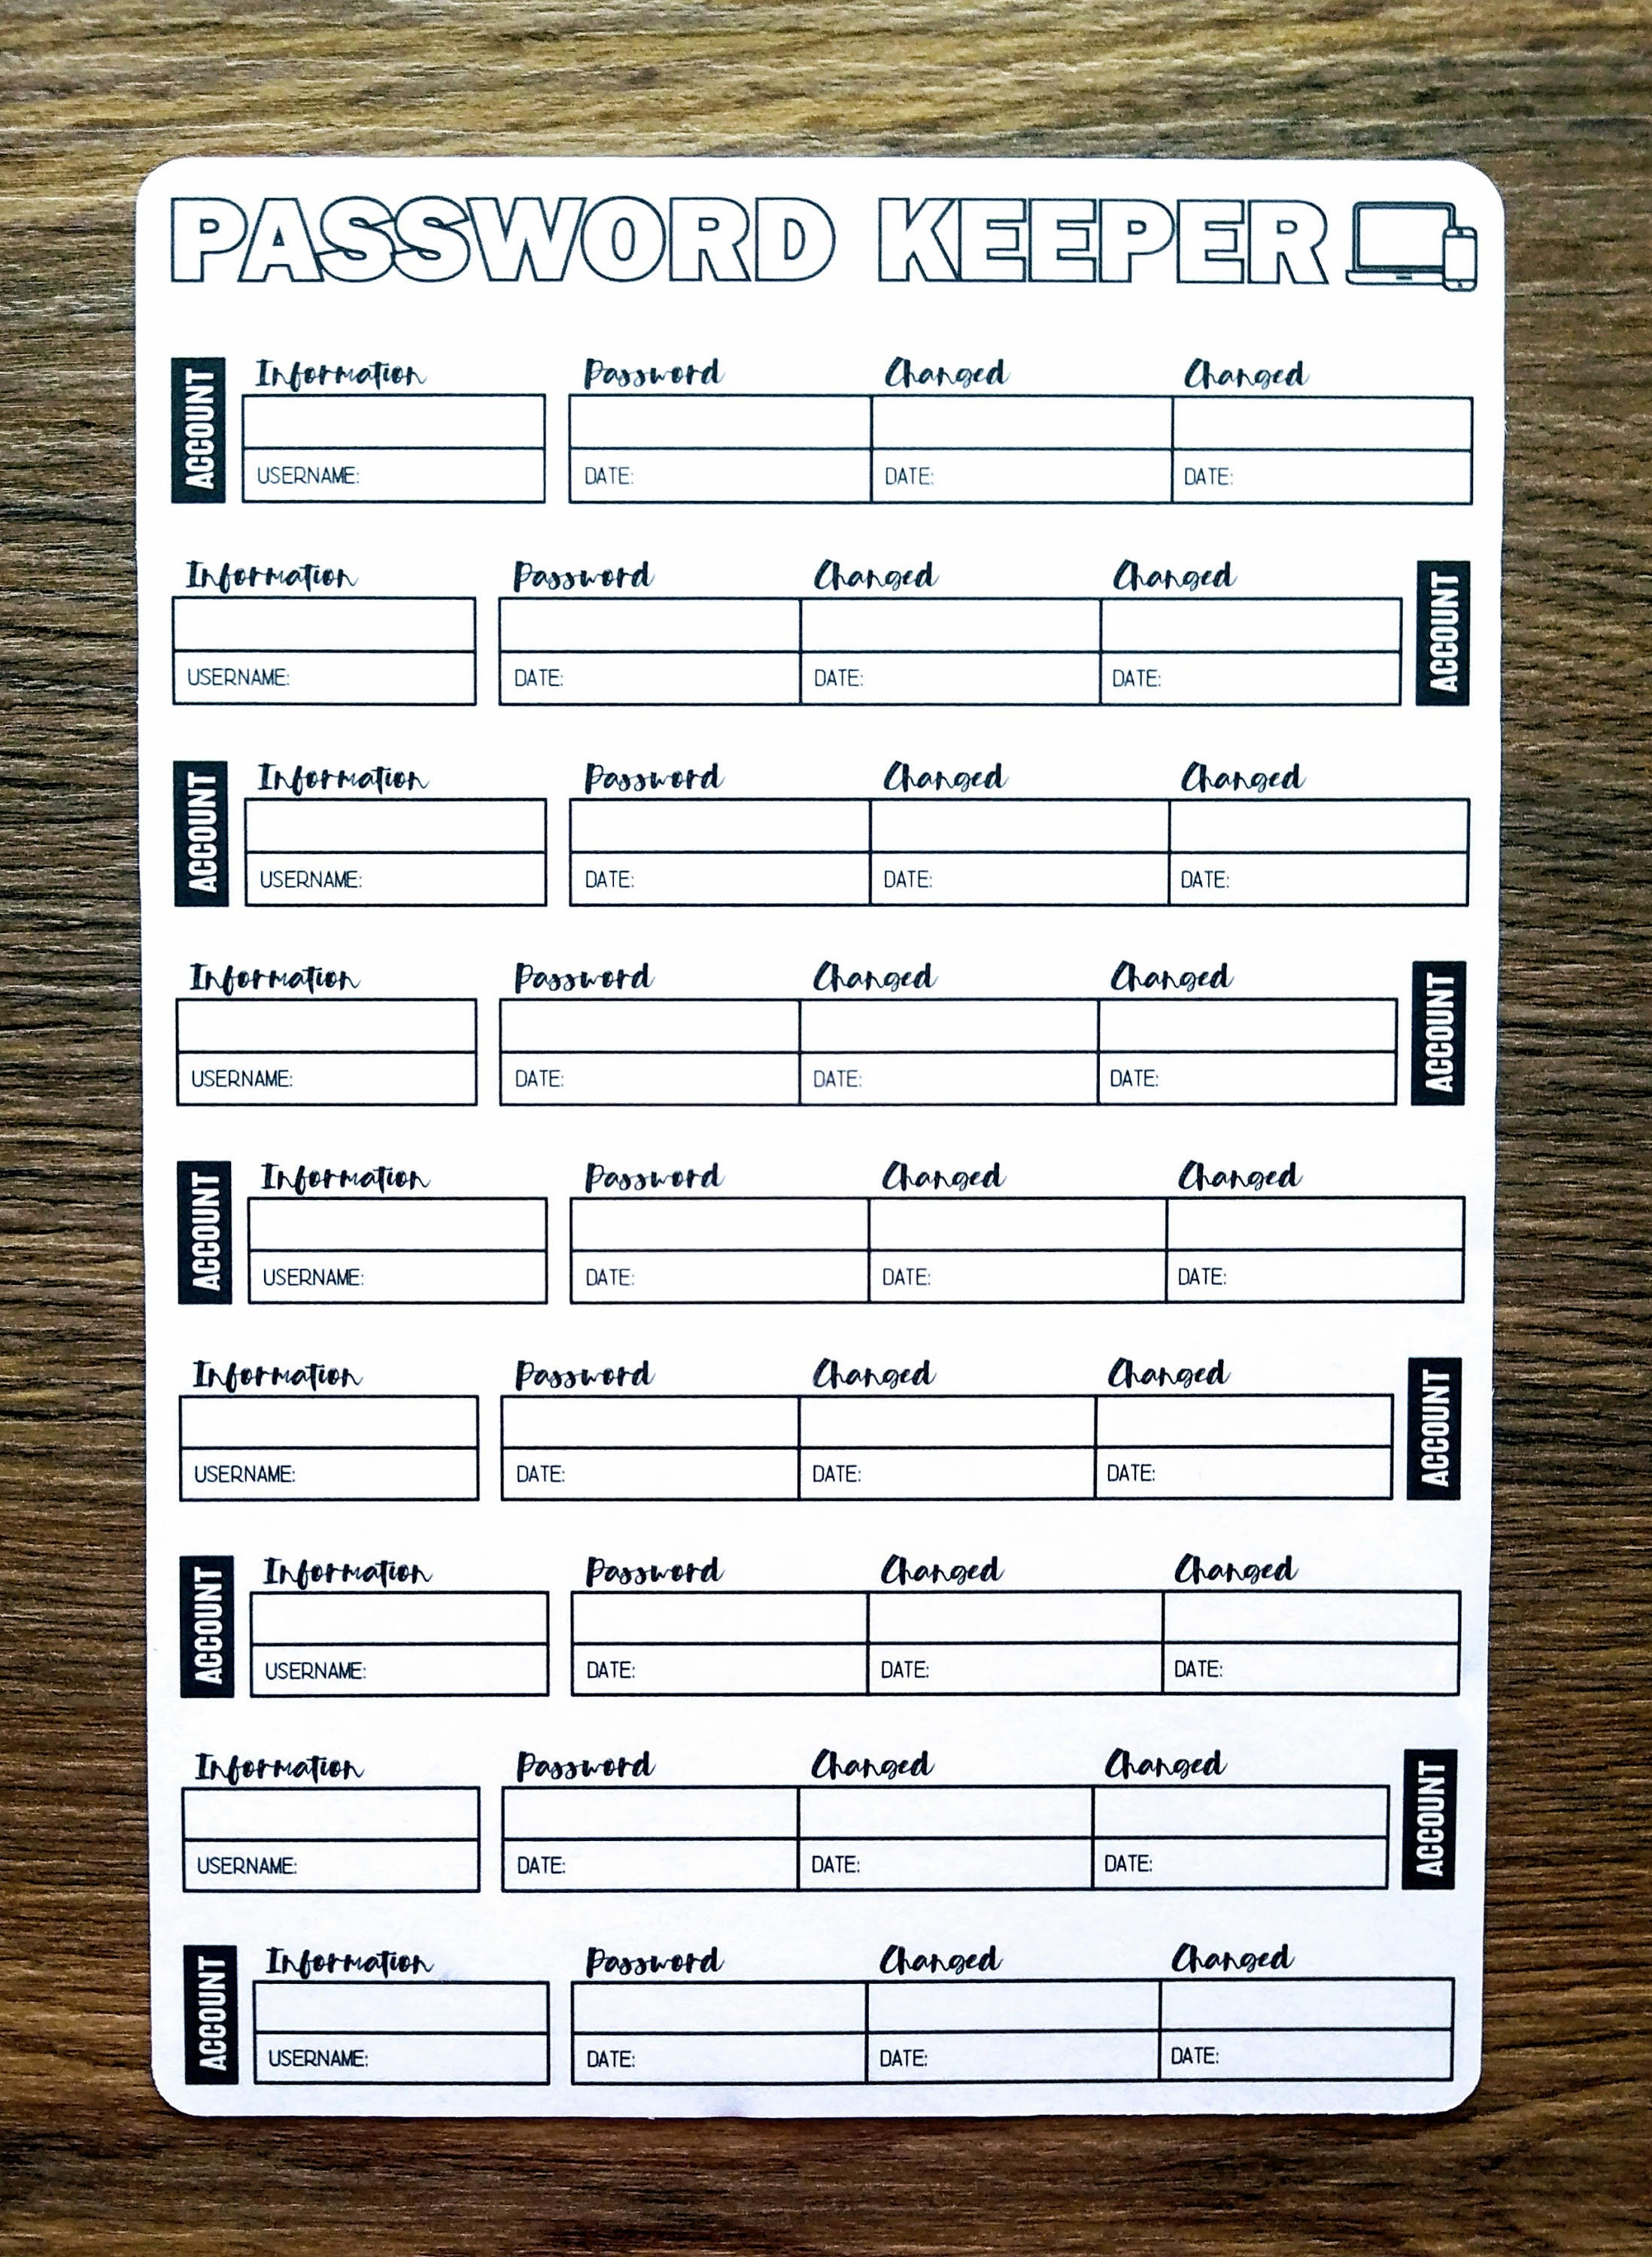 PASSWORD KEEPER
ACCOUNT
Information Password Changed Changed
USERNAME: DATE: DATE: DATE:
Information Password Changed Changed
USERNAME: DATE: DATE: DATE:
ACCOUNT
ACCOUNT
Information Password Changed Changed
USERNAME: DATE: DATE: DATE:
Information Password Changed Changed
USERNAME: DATE: DATE: DATE:
ACCOUNT
ACCOUNT
Information Password Changed Changed
USERNAME: DATE: DATE: DATE:
Information Password Changed Changed
USERNAME: DATE: DATE: DATE:
ACCOUNT
ACCOUNT
Information Password Changed Changed
USERNAME: DATE: DATE: DATE:
Information Password Changed Changed
USERNAME: DATE: DATE: DATE:
ACCOUNT
ACCOUNT
Information Password Changed Changed
USERNAME: DATE: DATE: DATE: